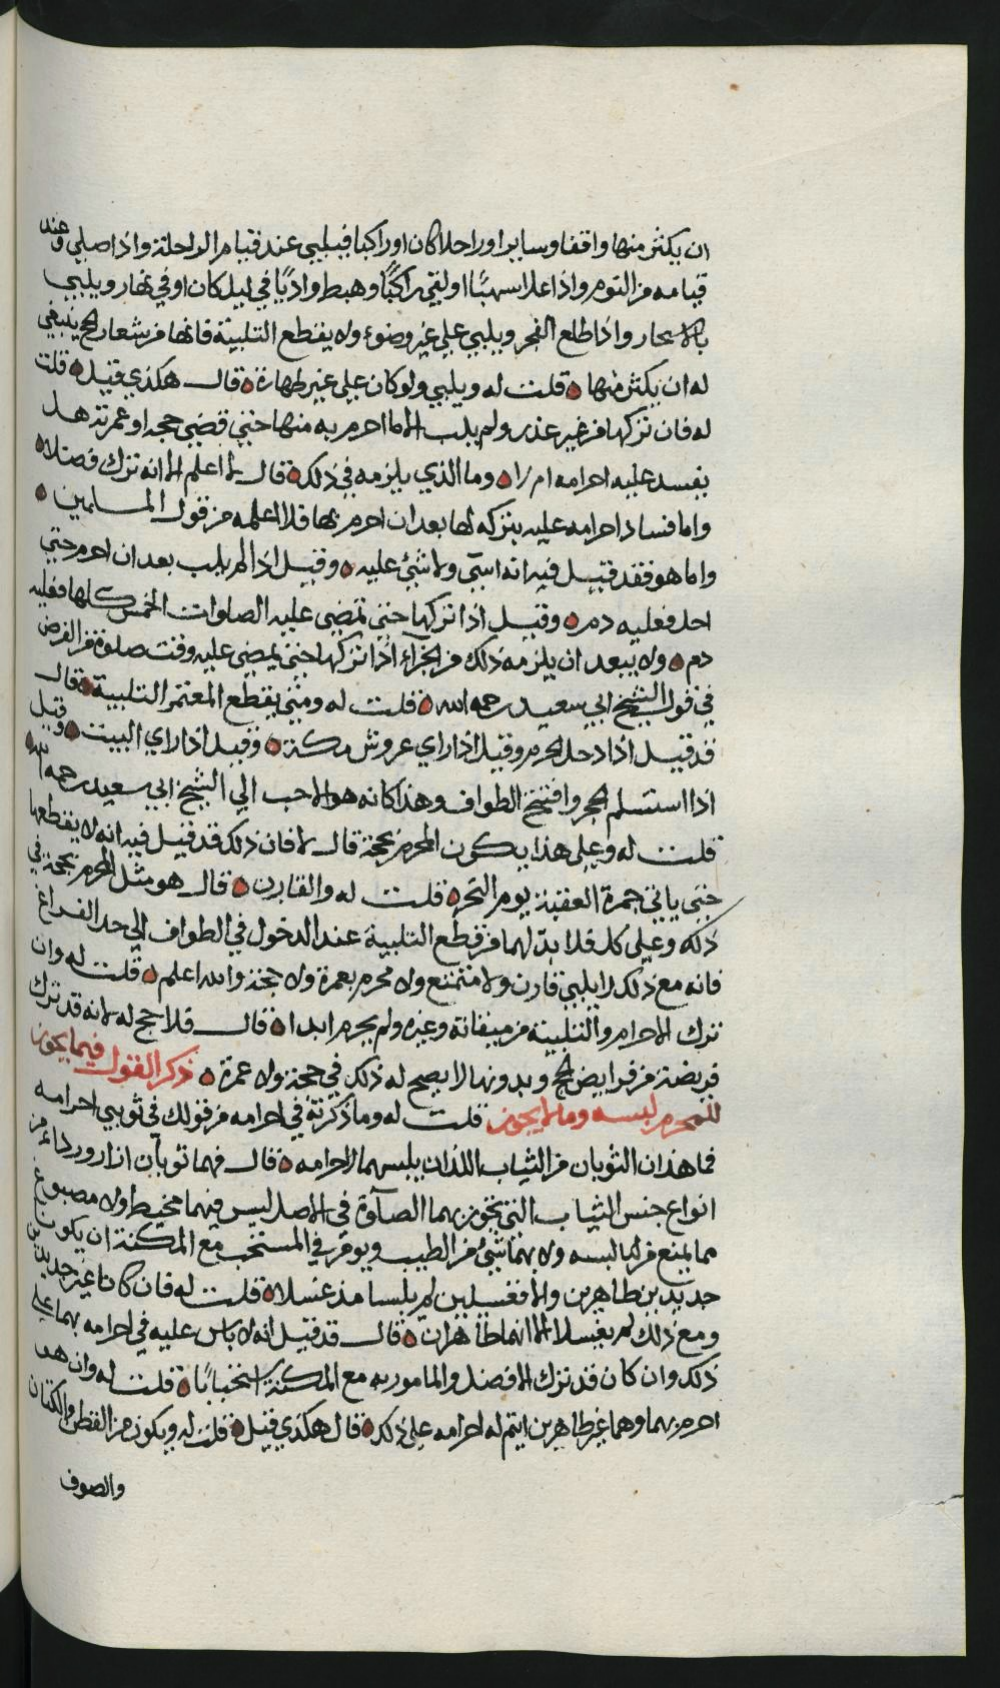 ان يكثر منها واقفا وسايرا وراحلا كان او راكبا فيلبي عند قيام الراحلة واذا صلي وعند
قيامه من النوم واذا علا سهبًا او لقي راكبًا وهبط واديًا في ليل كان او في نهار ويلبي
بالاسحار واذا طلع الفجر ويلبي علي غير وضوء ولا يقطع التلبية فانها من شعار الحج ينبغي
له ان يكثر منها ه قلت له ويلبي ولو كان علي غير طهارة ه قال هكذي قيل ه قلت
له فان تركها من غير عذر ولم يلب الا ما احرم به منها حتي قضي حجه او عمرته هل
يفسد عليه احرامه ام لا ه وما الذي يلزمه في ذلك ه قال لا اعلم الا انه ترك فضلا ه
واما فساد احرامه عليه بتركه لها بعد ان احرم بها فلا اعلمه من قول المسلمين ه
واما هو فقد قيل فيه انه اسآء ولا شئ عليه ه وقيل اذا لم يلب بعد ان احرم حتي
احل فعليه دم ه وقيل اذا تركها حتي تمضي عليه الصلوات الخمس كلها فعليه
دم ه ولا يبعد ان يلزمه ذلك من الجزآء اذا تركها حتي يمضي عليه وقت صلوة من الفرض
في قول الشيخ ابي سعيد رحمه الله ه قلت له ومتي يقطع المعتمر التلبية ه قال
قد قيل اذا دخل الحرم وقيل اذا راي عروش مكة ه وقيل اذا راي البيت ه وقيل
اذا استلم الحجر وافتتح الطواف وهذا كانه هو الاحب الي الشيخ ابي سعيد رحمه الله ه
قلت له وعلي هذا يكون المحرم بحجة قال لا فان ذلك قد قيل فيه انه لا يقطعها
حتي ياتي جمرة العقبة يوم النحر ه قلت له والقارن ه قال هو مثل المحرم بحجة في
ذلك وعلي كل فلا بدّ لهما من قطع التلبية عند الدخول في الطواف الي حد الفراغ
فانه مع ذلك لا يلبي قارن ولا متمتع ولا محرم بعمرة ولا حجة والله اعلم ه قلت له وان
ترك الاحرام والتلبية من ميقاته وغيره ولم يحرم ابدا ه قال فلا حج له لانه قد ترك
فريضة من فرايض الحج وبدونها لا يصح له ذلك في حجة ولا عمرة ه ذكر القول فيما يجوز
للمحرم لبسه وما لا يجوز قلت له وما ذكرته في احرامه من قولك في ثوبي احرامه
فما هذان الثوبان من الثياب اللذان يلبسهما لاحرامه ه قال فهما ثوبان ازار وردآء من
انواع جنس الثياب التي تجوز بهما الصلوة في الاصل ليس فيهما مخيط ولا مصبوغ
مما يمنع من لبسه ولا بهما شئ من الطيب ويومر في المستحب مع المكنة ان يكون
جديدين طاهرين والا فغسيلين لم يلبسا مذ غسلا ه قلت له فان كانا غير جديدين
ومع ذلك لم يغسلا الا انهما طاهران ه قال قد قيل انه لا باس عليه في احرامه بهما علي
ذلك وان كان قد ترك الافضل والمامور به مع المكنة استحبابًا ه قلت له وان هو
احرم بهما وهما غير طاهرين ايتم له احرامه علي ذلك ه قال هكذي قيل ه قلت له ويكون من القطن والكتان
والصوف